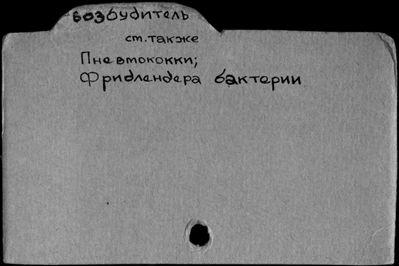 возбудитель
ст. также
Пневмококки;
Фридлендера бактерии